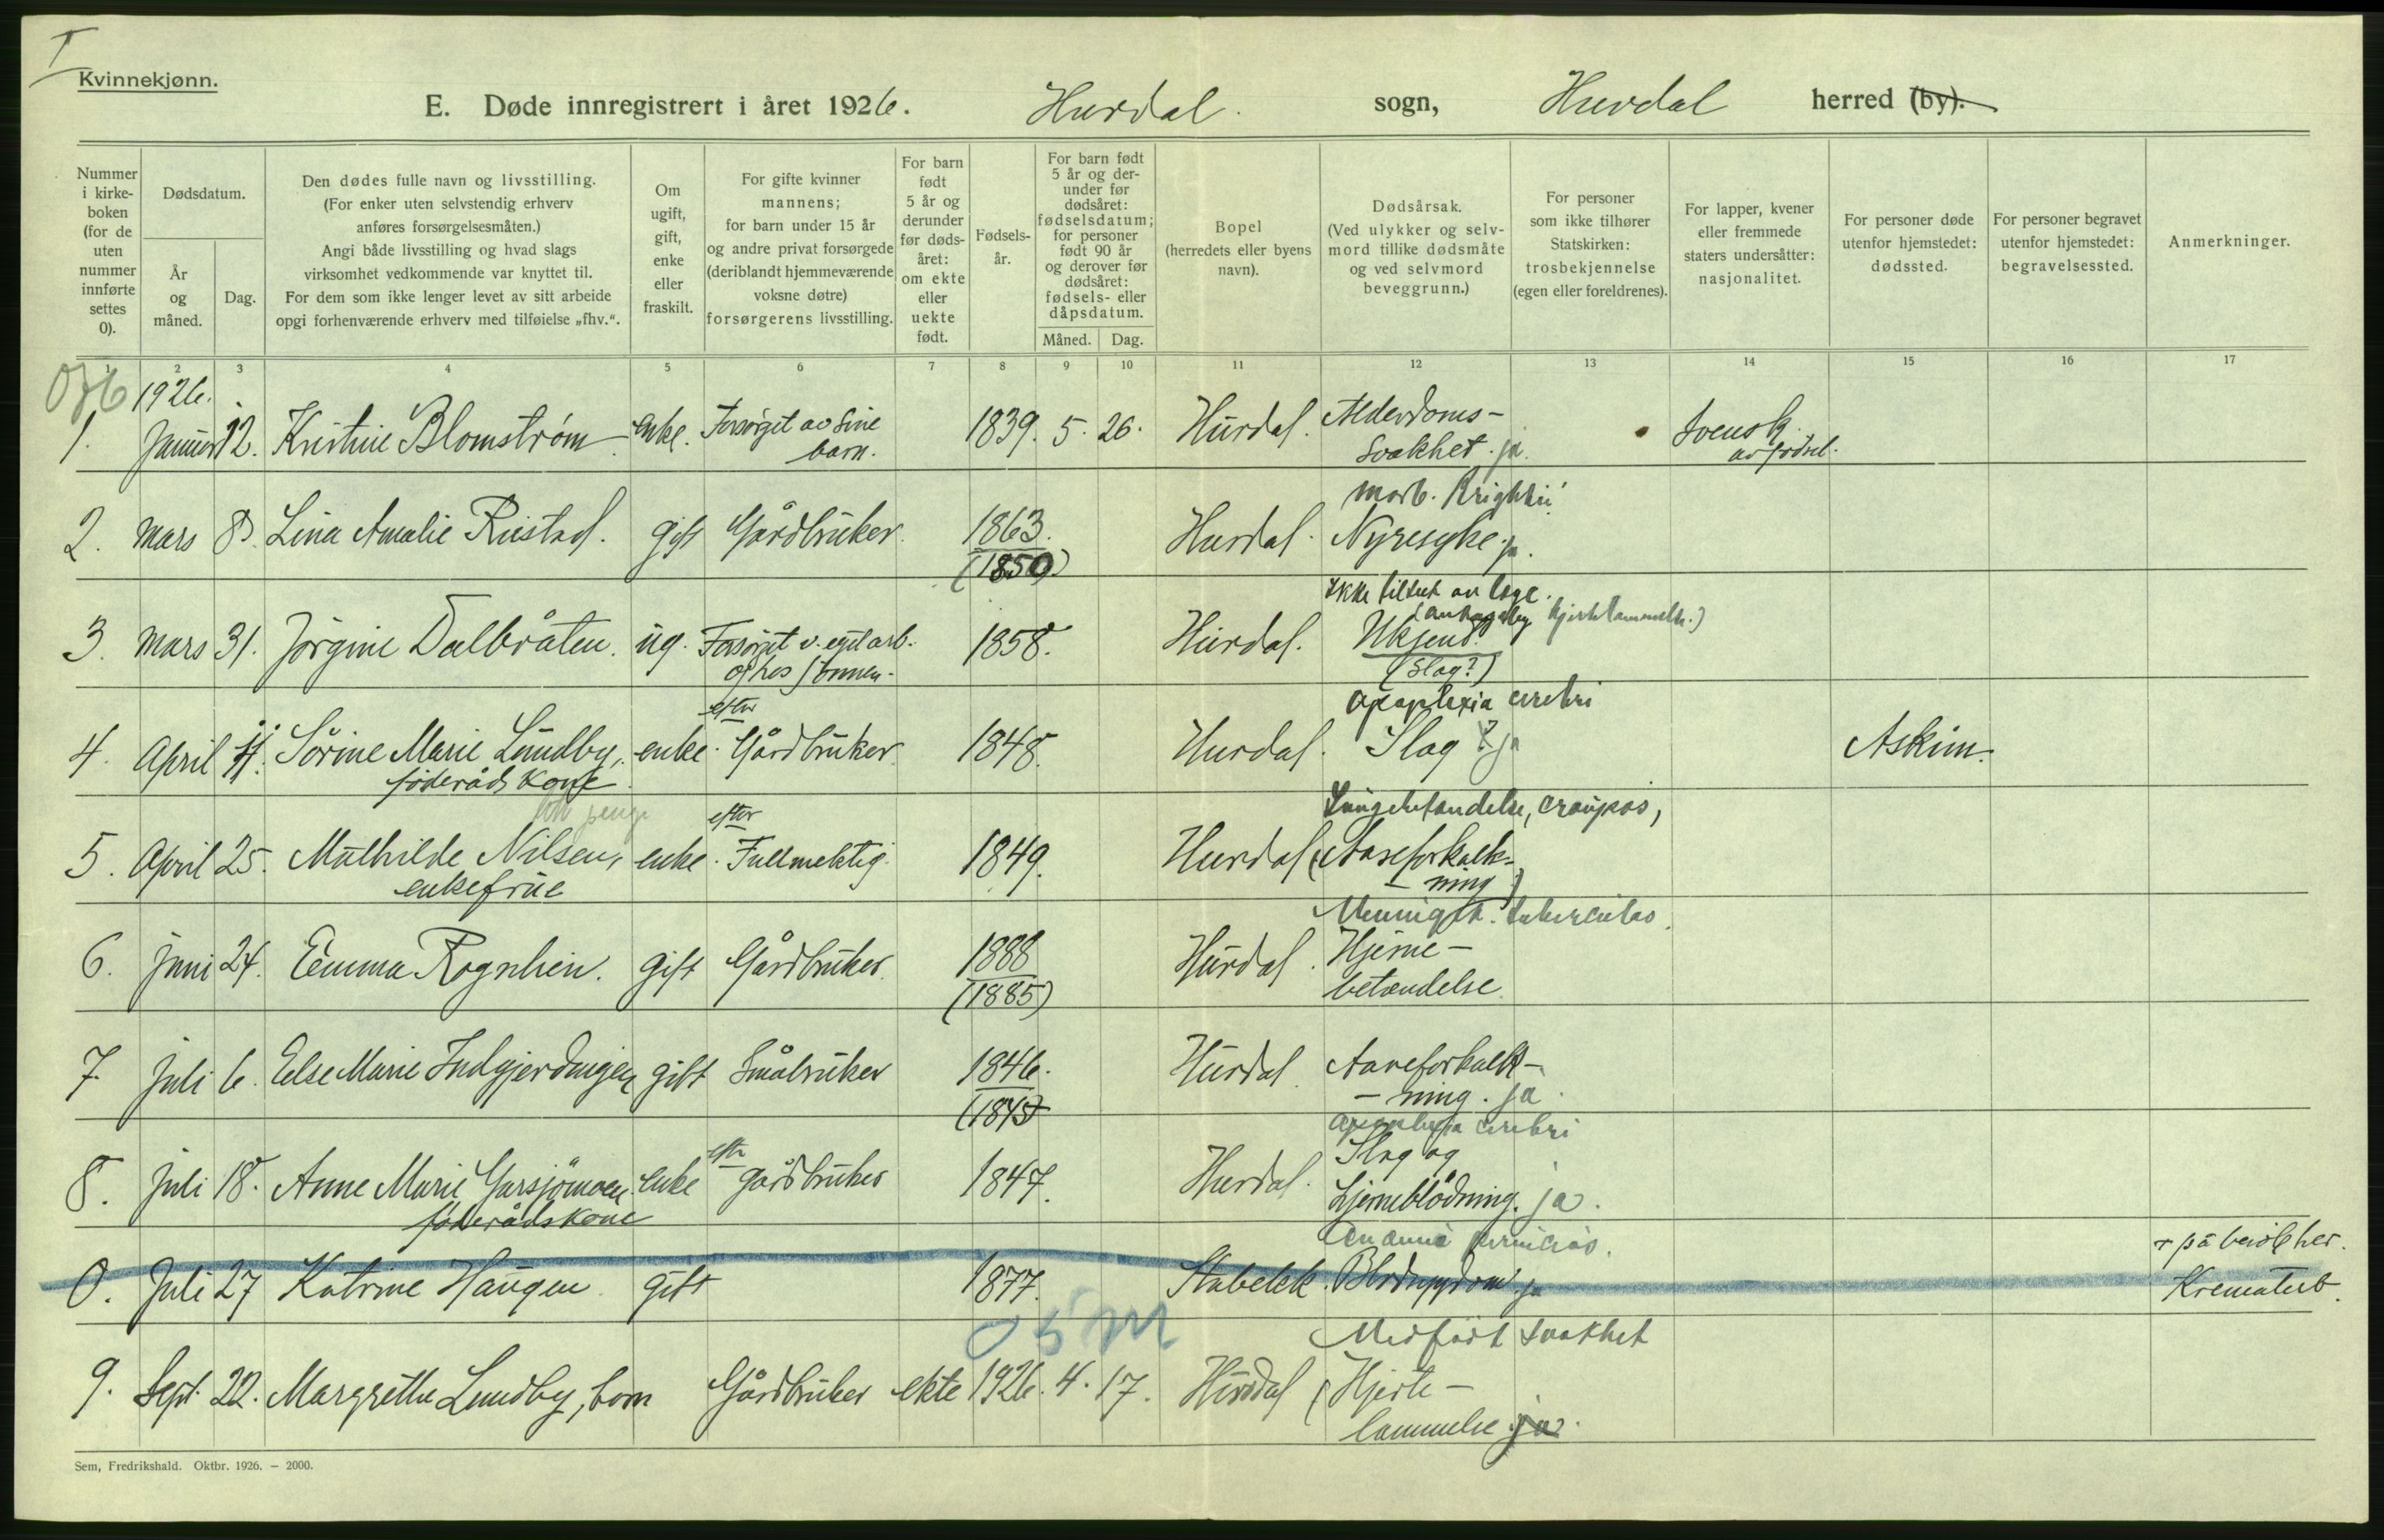 I
Kvinnekjønn.
E. Døde innregistrert i året 1926. Hurdal. sogn, Hurdal herred (by).
Nummer i kirke- boken (for de uten nummer innførte settes 0).
Dødsdatum.
År og måned.
Dag.
Den dødes fulle navn og livsstilling.
(For enker uten selvstendig erhverv
anføres forsørgelsesmåten.)
Angi både livsstilling og hvad slags
virksomhet vedkommende var knyttet til.
For dem som ikke lenger levet av sitt arbeide
opgi forhenværende erhverv med tilføielse „fhv.“.
Om ugift, gift, enke eller fraskilt.
For gifte kvinner
mannens;
for barn under 15 år
og andre privat forsørgede
(deriblandt hjemmeværende
voksne døtre)
forsørgerens livsstilling.
For barn født 5 år og derunder før døds- året: om ekte eller uekte født.
Fødsels- år.
For barn født
5 år og der-
under før
dødsåret:
fødselsdatum;
for personer
født 90 år
og derover før
dødsåret:
fødsels- eller
dåpsdatum.
Måned. Dag.
Bopel
(herredets eller byens
navn).
Dødsårsak.
(Ved ulykker og selv-
mord tillike dødsmåte
og ved selvmord
beveggrunn.)
For personer
som ikke tilhører
Statskirken:
trosbekjennelse
(egen eller foreldrenes).
For lapper, kvener
eller fremmede
staters undersåtter:
nasjonalitet.
For personer døde
utenfor hjemstedet:
dødssted.
For personer begravet
utenfor hjemstedet:
begravelsessted.
Anmerkninger.
1 2 3 4 5 6 7 8 9 10 11 12 13 14 15 16 17
1926.
1. Januar 12. Kristine Blomstrøm enke. Forsørget av sine barn. 1839. 5. 26. Hurdal. Alderdoms-
svakhet. ja. Svensk av fødsel.
morb. Brightii
2. Mars 8. Lina Amalie Rustad. gift Gårdbruker. 1863. Hurdal. Nyresyke. ja.
(1850)
Ikke tilset av læge.
(antagelig hjertelammelse.)
3. Mars 31. Jörgine Dalbråten. ug. Forsørget v. eget arb. 1858. Hurdal. Ukjent.
og hos sønnen. (Slag?)
efter apoplexia cerebri
4. April 11. Sörine Marie Lundby, enke. Gårdbruker 1848. Hurdal. Slag ? ja Askim.
föderådskone
efter Lungebetændelse, croupøs,
5. April 25. Mathilde Nilsen, enke. Fullmektig. 1849. Hurdal (Aareforkalk-
enkefrue - ning)
Meningit. tuberculos.
6. Juni 24. Emma Rognlien. gift Gårdbruker. 1888 Hurdal. Hjerne-
(1885) betændelse.
7. Juli 6. Else Marie Indgjerdingen gift Småbruker 1846. Hurdal. Aareforkalk-
- ning. ja.
apoplexia cerebri
8. Juli 18. Anne Marie Garsjömoen. enke efter gårdbruker 1847. Hurdal. Slag og
föderådskone hjerneblødning. ja.
0. Juli 27 Katrine Haugen. gift 1877. Stabekk. Blodsygdom. ja
Krematert.
Medfødt svakhet
9. Sept. 22. Margrethe Lundby, barn Gårdbruker ekte 1926. 4. 17. Hurdal (Hjerte-
lammelse ja.
Sem, Fredrikshald. Oktbr. 1926. — 2000.